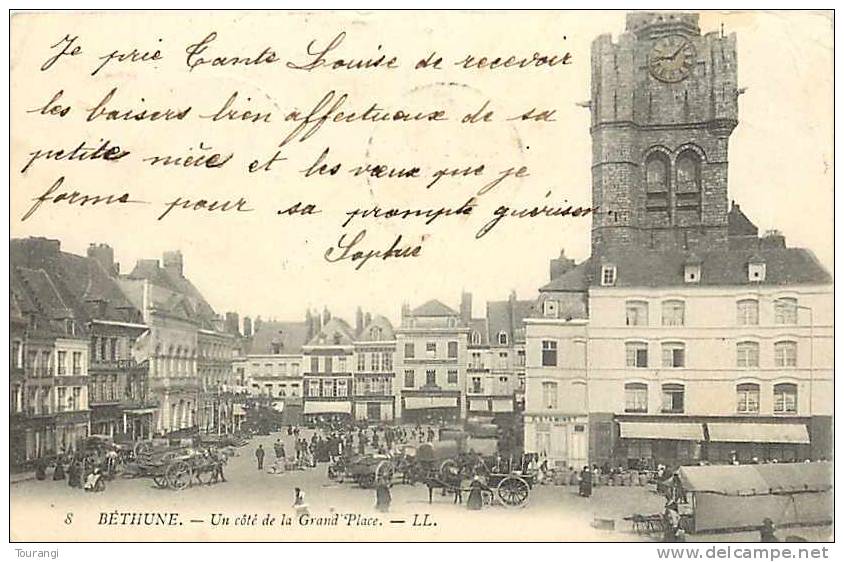 Je prie Tante Louise de recevoir
les baisers bien affectueux de sa
petite nièce et les vœux que je
forme pour sa prompte guérison.
Sophie
ESTAMINET
8 BÉTHUNE. - Un côté de la Grand'Place. - LL.
Tourangi
www.delcampe.net